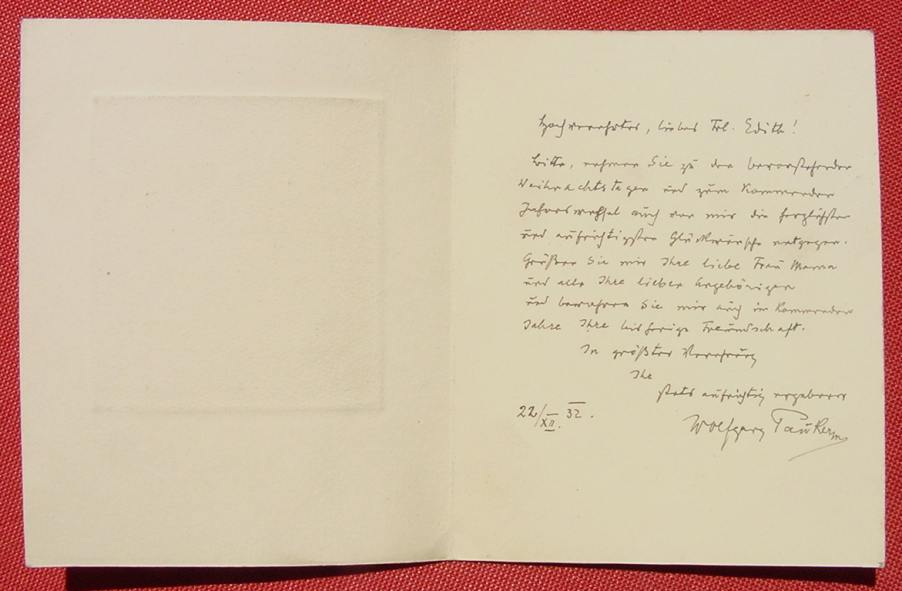 Hochverehrtes, liebes Frl. Edith!
Bitte, nehmen Sie zu den bevorstehenden
Weihnachtstagen und zum kommenden
Jahreswechsel auch von mir die herzlichsten
und aufrichtigsten Glückwünsche entgegen.
Grüßen Sie mir Ihre liebe Frau Mama
und alle Ihre lieben Angehörigen
und bewahren Sie mir auch im kommenden
Jahre Ihre bisherige Freundschaft.
In größter Verehrung
Ihr
stets aufrichtig ergebener
22/XII. 32.
Wolfgang